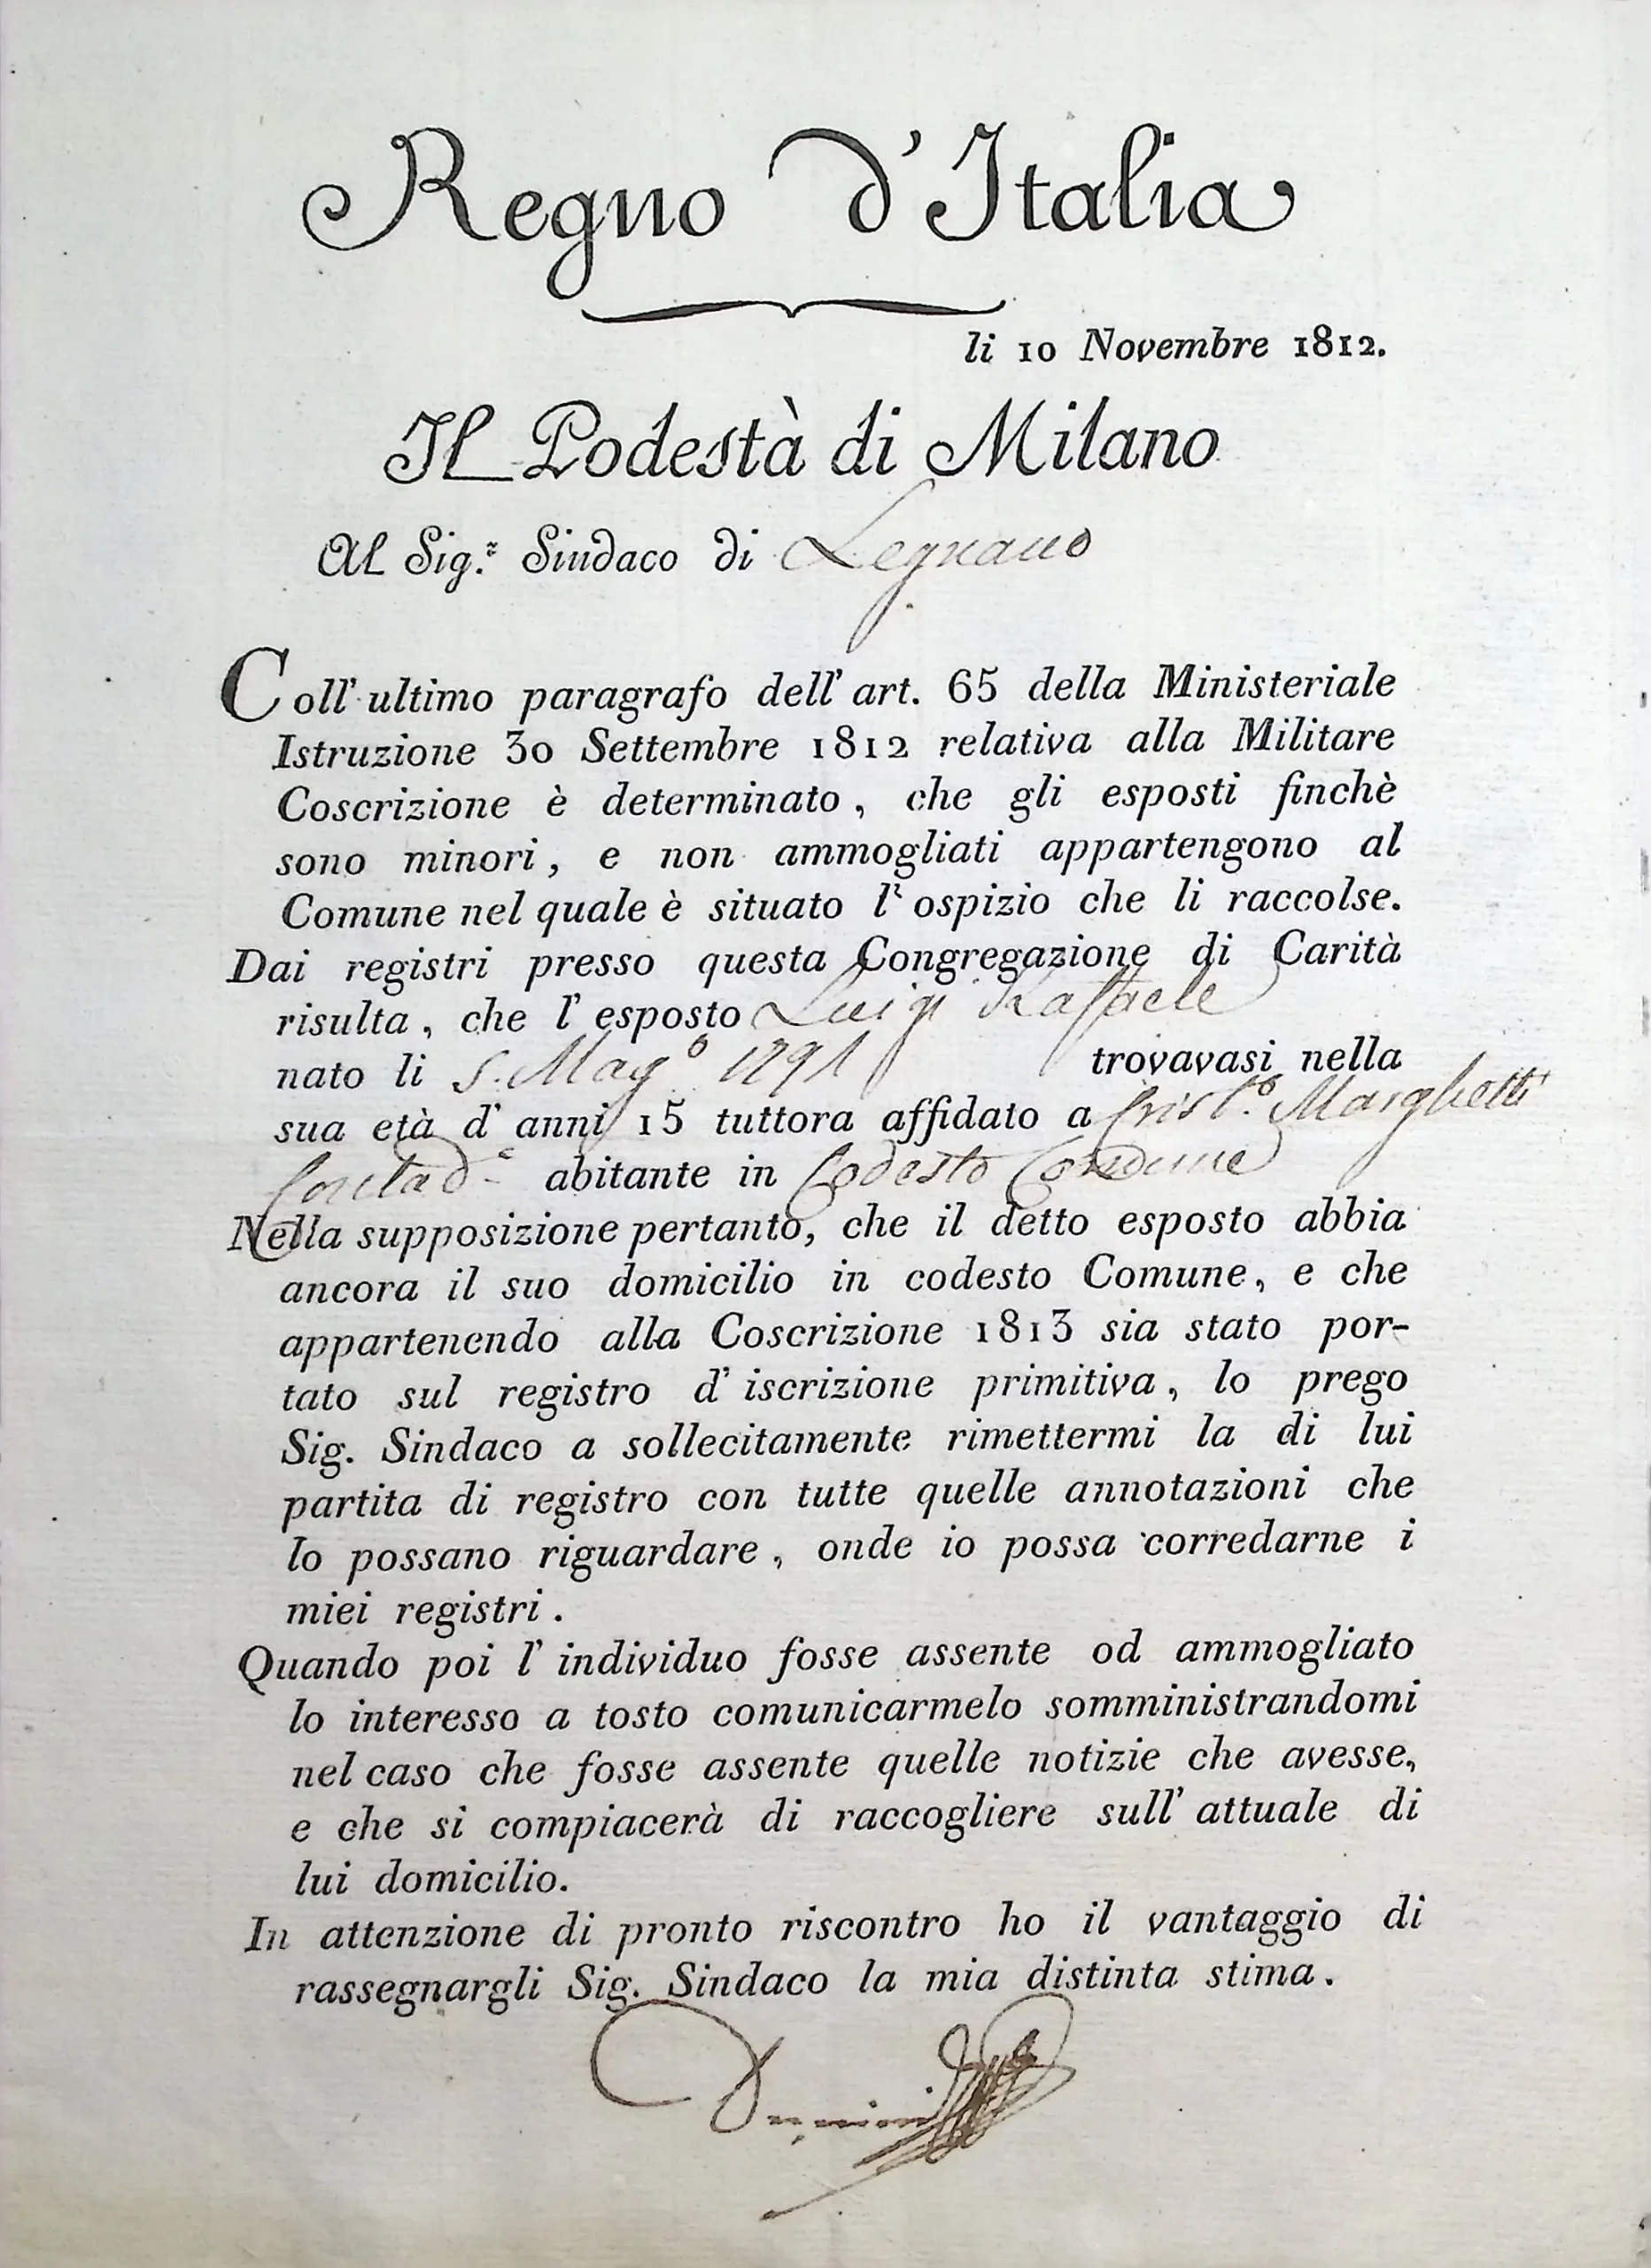 Regno d'Italia
li 10 Novembre 1812.
Il Podestà di Milano
Al Sig.r Sindaco di Legnano
Coll'ultimo paragrafo dell'art. 65 della Ministeriale
Istruzione 30 Settembre 1812 relativa alla Militare
Coscrizione è determinato, che gli esposti finchè
sono minori, e non ammogliati appartengono al
Comune nel quale è situato l'ospizio che li raccolse.
Dai registri presso questa Congregazione di Carità
risulta, che l'esposto Luigi Raffaele
nato li 5. Mag.o 1791 trovavasi nella
sua età d'anni 15 tuttora affidato a Crist.o Marghetti
Contad.e abitante in Codesto Comune
Nella supposizione pertanto, che il detto esposto abbia
ancora il suo domicilio in codesto Comune, e che
appartenendo alla Coscrizione 1813 sia stato por-
tato sul registro d'iscrizione primitiva, lo prego
Sig. Sindaco a sollecitamente rimettermi la di lui
partita di registro con tutte quelle annotazioni che
lo possano riguardare, onde io possa corredarne i
miei registri.
Quando poi l'individuo fosse assente od ammogliato
lo interesso a tosto comunicarmelo somministrandomi
nel caso che fosse assente quelle notizie che avesse,
e che si compiacerà di raccogliere sull'attuale di
lui domicilio.
In attenzione di pronto riscontro ho il vantaggio di
rassegnargli Sig. Sindaco la mia distinta stima.